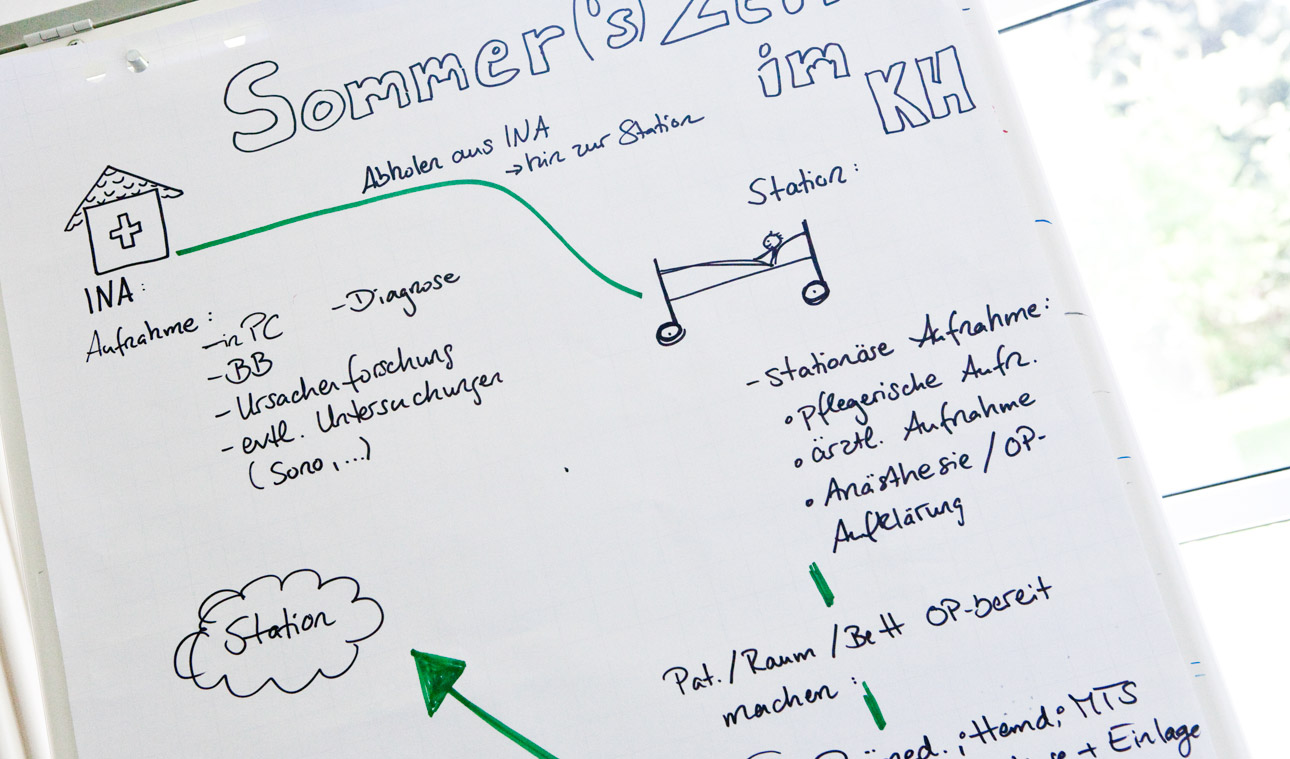 Sommer('s) Zeit
im
KH
Abholen aus INA
→ hin zur Station
INA:
Aufnahme:
- in PC
- Diagnose
- BB
- Ursachenforschung
- evtl. Untersuchungen
(Sono, ...)
Station:
- stationäse Aufnahme:
• pflegerische Aufn.
• ärztl. Aufnahme
• Anästhesie / OP-
Aufklärung
Station
Pat./Raum /Bett OP-bereit
machen:
; Hemd; MTS
+ Einlage